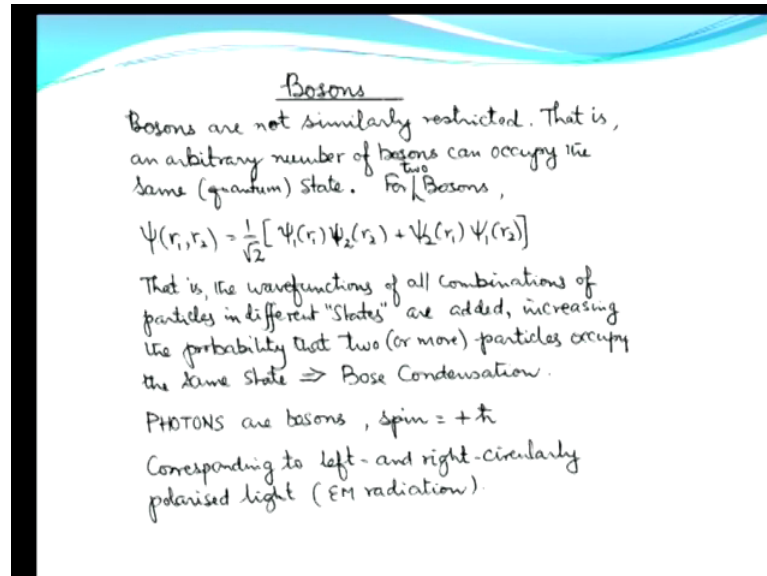 Bosons
Bosons are not similarly restricted. That is,
an arbitrary number of bosons can occupy the
same (quantum) state. For two Bosons,
Ψ(r₁,r₂) = 1/√2 [Ψ₁(r₁)Ψ₂(r₂) + Ψ₂(r₁)Ψ₁(r₂)]
That is, the wavefunctions of all combinations of
particles in different "States" are added, increasing
the probability that two (or more) particles occupy
the same state ⇒ Bose Condensation.
PHOTONS are bosons, spin = +ħ
Corresponding to left- and right-circularly
polarised light (EM radiation).